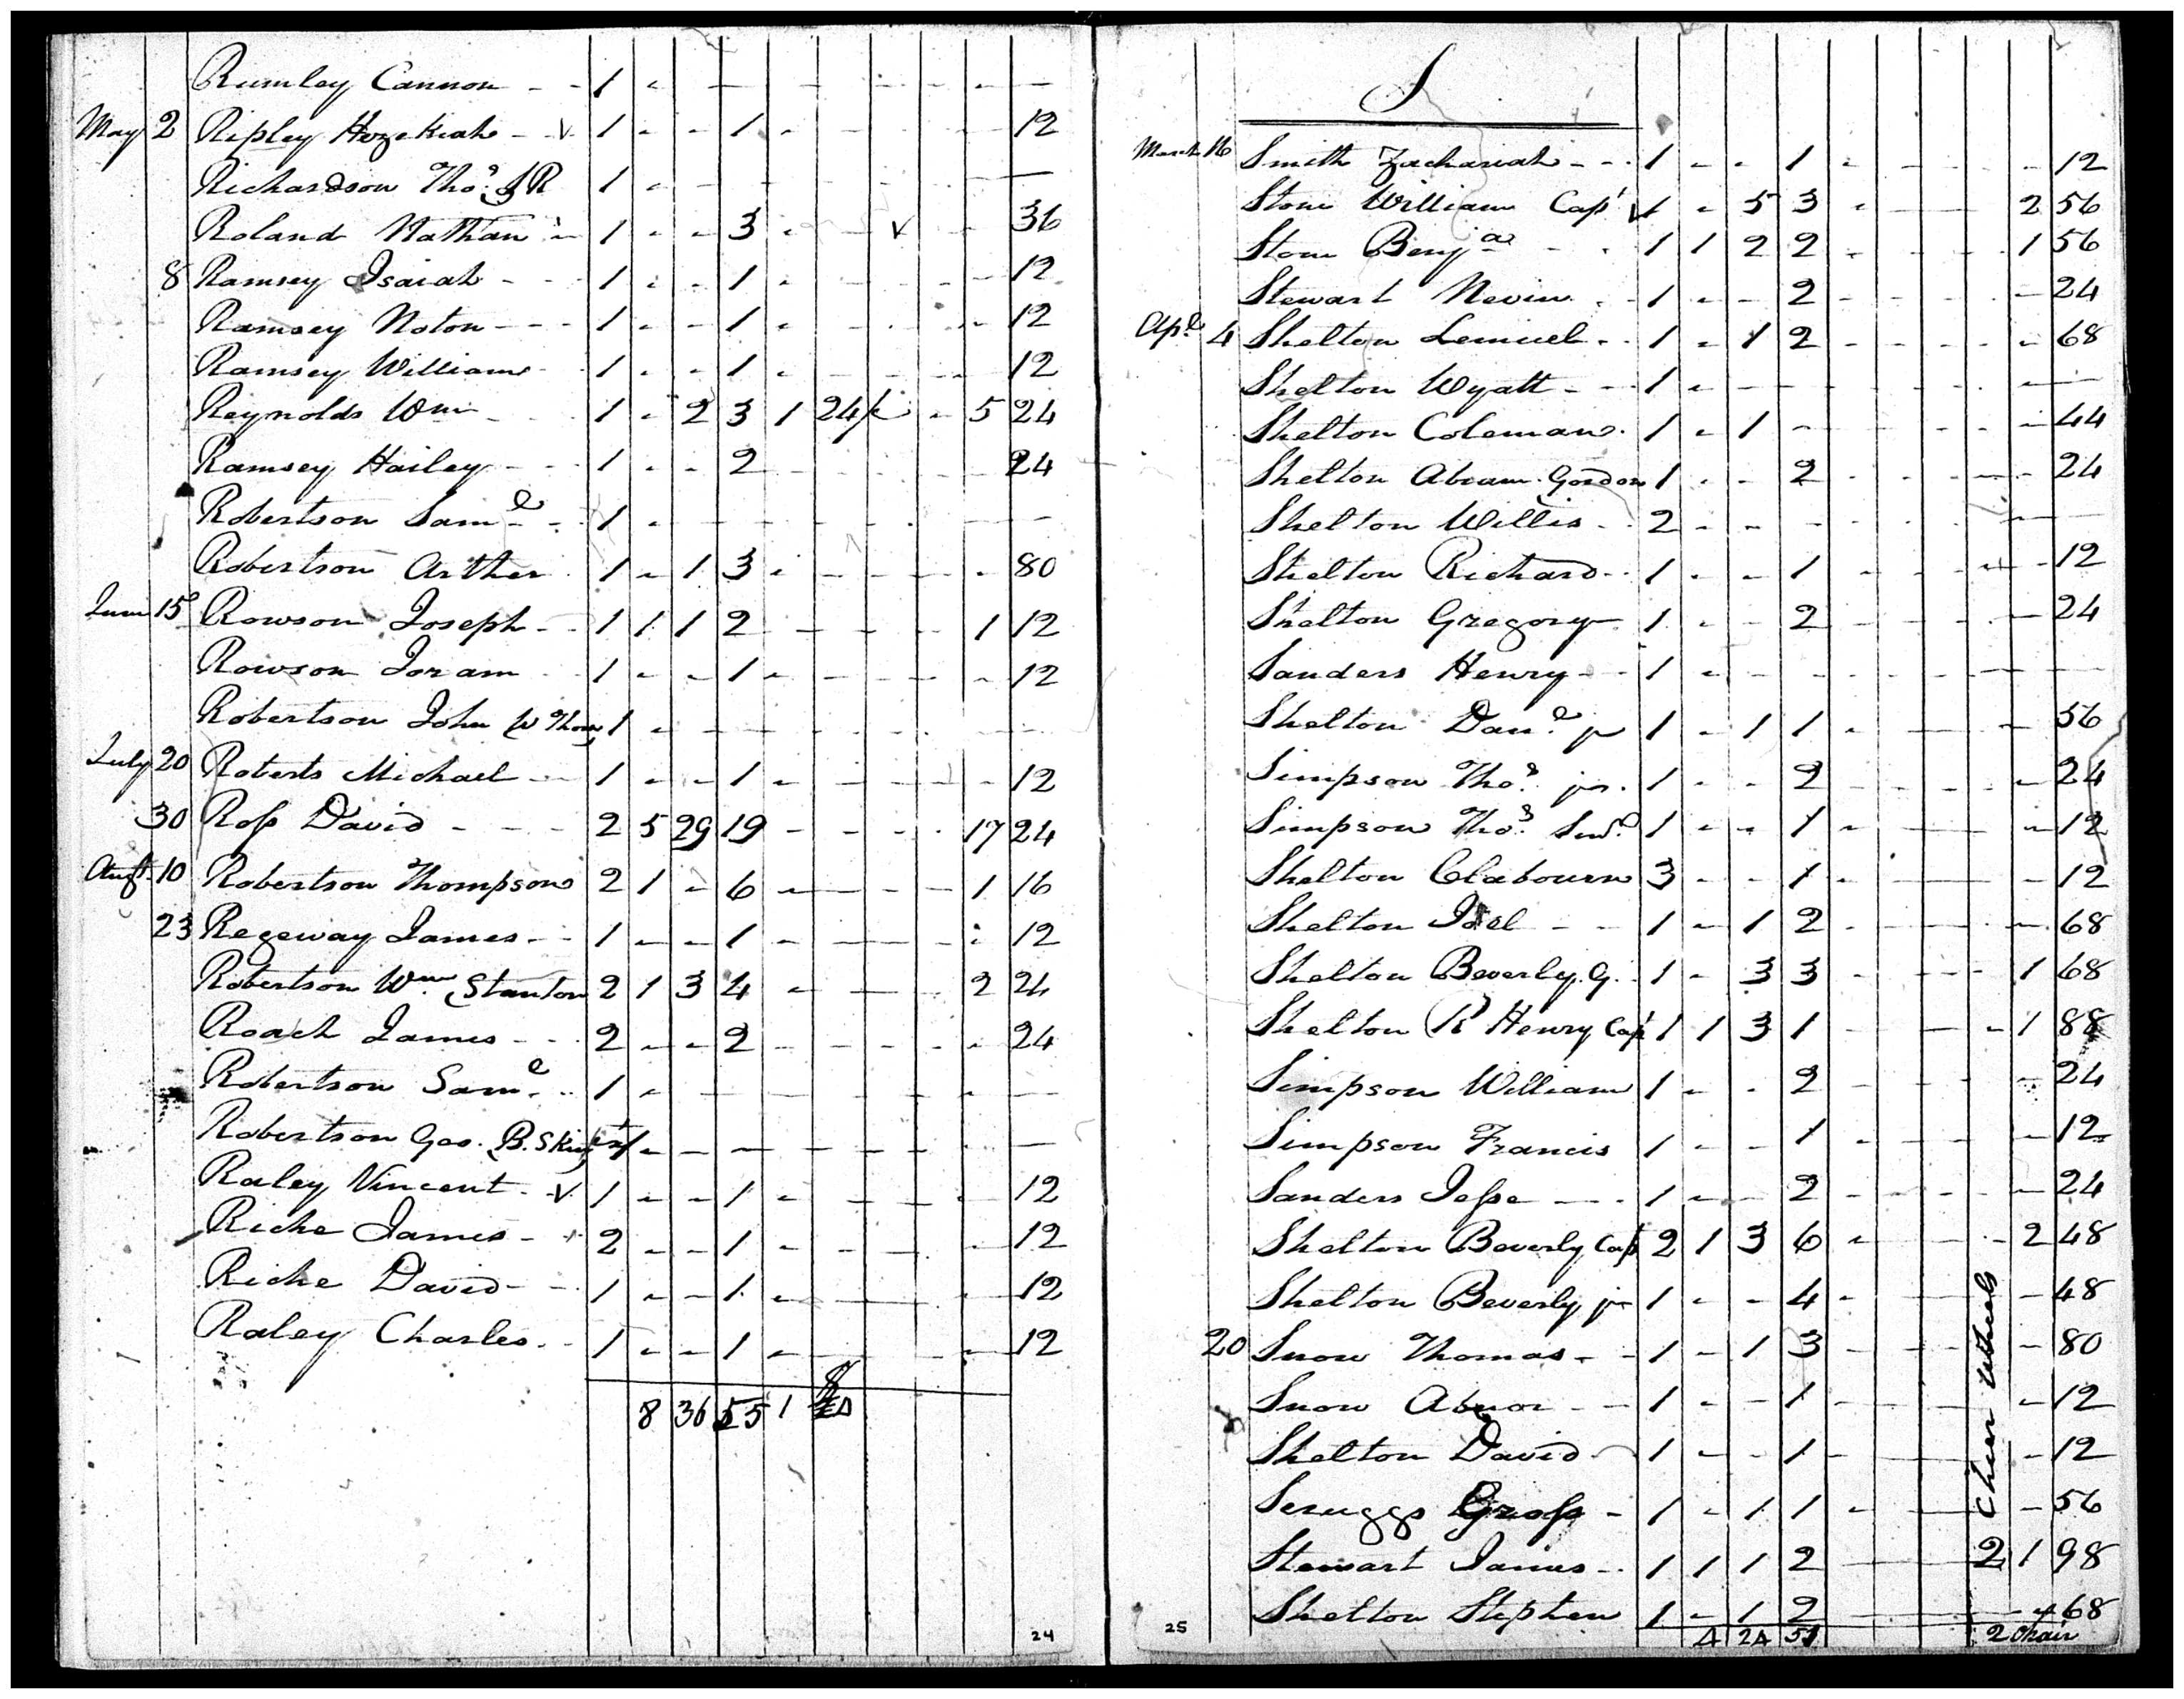 Rumley Cannon - - 1 - - - - - - -
May 2 Ripley Hezekiah - v 1 - - 1 - - - - 12
Richardson Thos. S R 1 - - -
Roland Nathan - 1 - - 3 - - v - 36
8 Ramsey Isaiah - - 1 - - 1 - - - - 12
Ramsey Noton - - - 1 - - 1 - - - - 12
Ramsey William - 1 - - 1 - - - - 12
Reynolds Wm - 1 - 2 3 1 24/ - 5 24
Ramsey Hailey - - 1 - - 2 - - - - 24
Robertson Saml. - 1 - - - - - - -
Robertson Arther 1 - 1 3 - - - - - 80
June 15 Rowson Joseph - - 1 1 1 2 - - - - 1 12
Rowson Joram - 1 - - 1 - - - - - 12
Robertson John 1 - - - - - - -
July 20 Roberts Michael - 1 - - 1 - - - - - 12
30 Ross David - - - 2 5 29 19 - - - - 17 24
Augt. 10 Robertson Thompson 2 1 - 6 - - - - 1 16
23 Regeway James - - 1 - - 1 - - - - 12
Robertson Wm. Stanton 2 1 3 4 - - - 2 24
Roach James - - - 2 - - 2 - - - - - 24
Robertson Saml. - 1 - - - - - - -
Robertson Geo. 1 - - - - - - - -
Raley Vincent - v 1 - - 1 - - - - 12
Riche James - 2 - - 1 - - - - - 12
Riche David - - 1 - - 1 - - - - 12
Raley Charles - - 1 - - 1 - - - - 12
8 36 55 1
24
S
March 16 Smith Zachariah - - - 1 - - 1 - - - - 12
Stone William Capt v 1 - 5 3 - - - 2 56
Stone Benja - - 1 1 2 2 - - - - 1 56
Stewart Nevin - - 1 - - 2 - - - - - 24
Apl. 4 Shelton Lemuel - - 1 - 1 2 - - - - - 68
Shelton Wyatt - - - 1 - - - - - - - -
Shelton Coleman 1 - 1 - - - - - - 44
Shelton Abram Gordon 1 - - 2 - - - - - 24
Shelton Willis - - 2 - - - - - - -
Shelton Richard - - 1 - - 1 - - - - - 12
Shelton Gregory 1 - - 2 - - - - - 24
Sanders Henry - - 1 - - - - - - - -
Shelton Danl. jr 1 - 1 1 - - - - - 56
Simpson Thos. jr. 1 - - 2 - - - - - 24
Simpson Thos. Senr. 1 - - 1 - - - - 12
Shelton Clabourn 3 - - 1 - - - - 12
Shelton Joel - - 1 - 1 2 - - - - 68
Shelton Beverly. G. - 1 - 3 3 - - - - 1 68
Shelton R Henry Capt 1 1 3 1 - - - 1 88
Simpson William 1 - - 2 - - - - - 24
Simpson Francis 1 - - 1 - - - - - 12
Sanders Jesse - - 1 - - 2 - - - - - 24
Shelton Beverly Capt 2 1 3 6 - - - - 2 48
Shelton Beverly jr 1 - - 4 - - - - 48
20 Snow Thomas - - 1 - 1 3 - - - - 80
Snow Abnor - - 1 - - 1 - - - - 12
Shelton David - 1 - - 1 - - - - 12
Scruggs Gross - 1 - 1 1 - - - - 56
Stewart James - - 1 1 1 2 - - 2 1 98
Shelton Stephen 1 - 1 2 - - - 68
Wheels
4 24 51 2 Chair
25